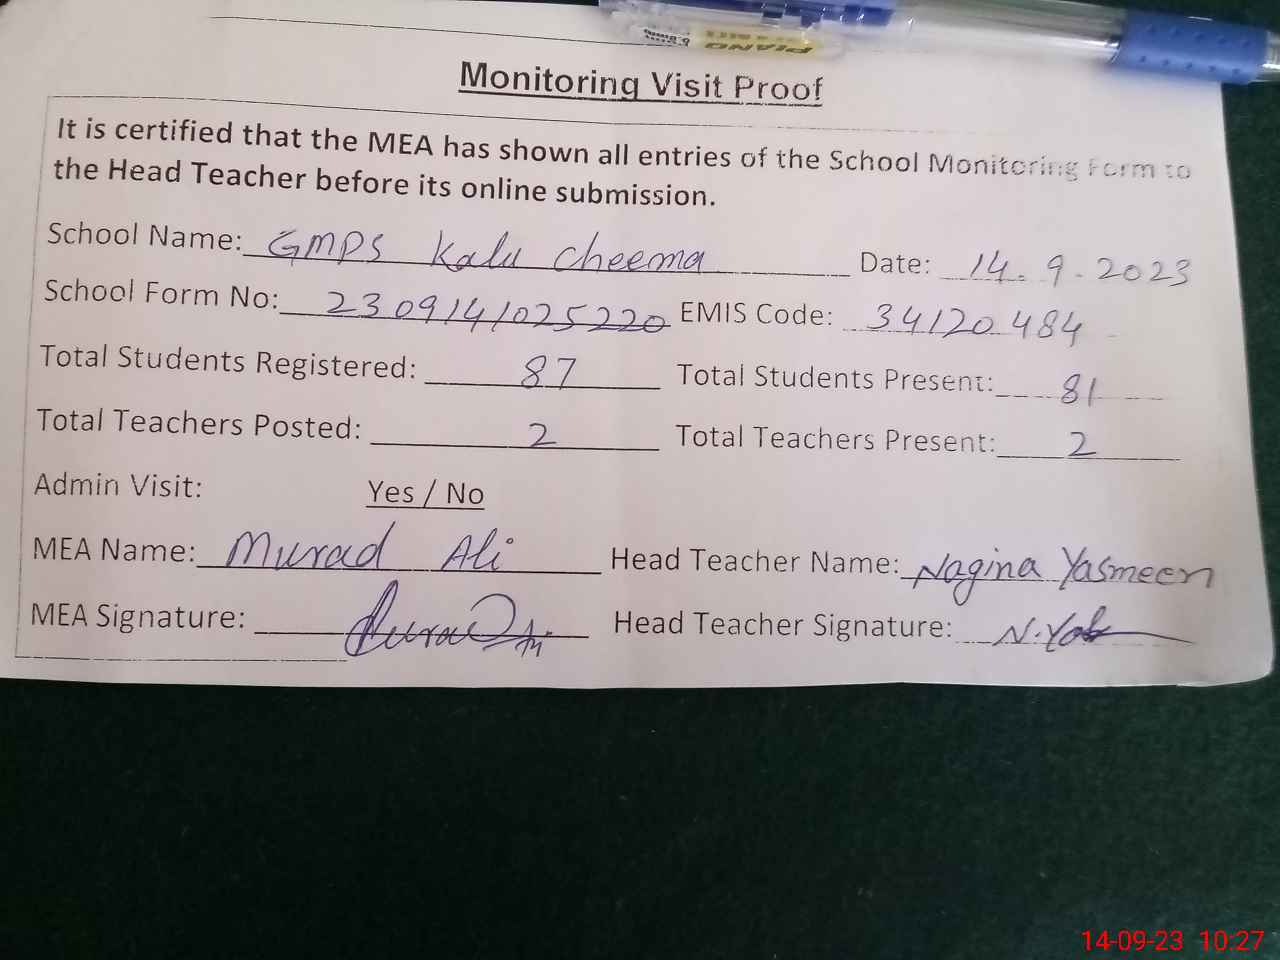 PIANO
Monitoring Visit Proof
It is certified that the MEA has shown all entries of the School Monitoring Form to
the Head Teacher before its online submission.
School Name: GMPS Kalu Cheema Date: 14.9.2023
School Form No: 2309141025220 EMIS Code: 34120484
Total Students Registered: 87 Total Students Present: 81
Total Teachers Posted: 2 Total Teachers Present: 2
Admin Visit: Yes / No
MEA Name: Murad Ali Head Teacher Name: Nagina Yasmeen
MEA Signature: Head Teacher Signature:
14-09-23 10:27